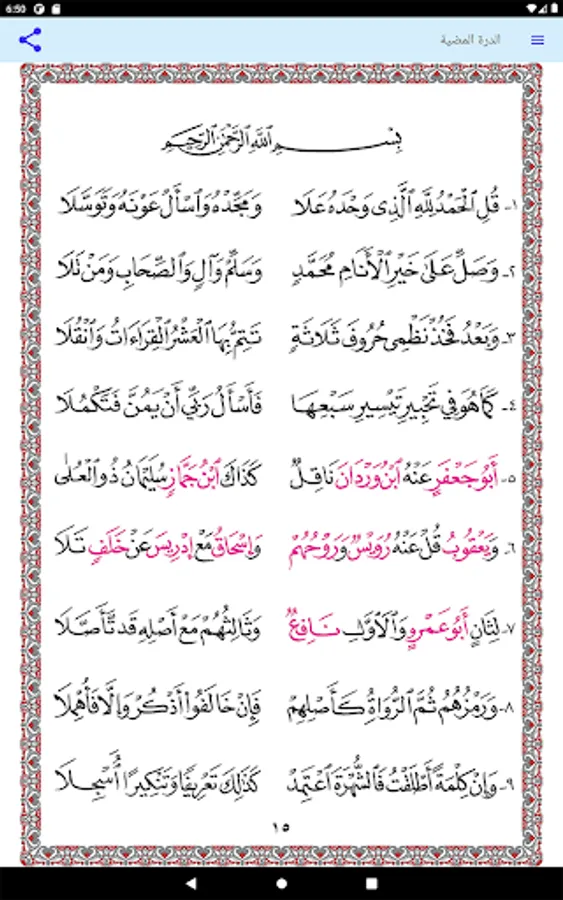 6:50
الدرة المضية
بِسْمِ ٱللَّهِ ٱلرَّحْمَٰنِ ٱلرَّحِيمِ
١- قُلِ ٱلْحَمْدُ لِلَّهِ ٱلَّذِى وَحْدَهُ عَلَا وَمَجِّدْهُ وَٱسْأَلْ عَوْنَهُ وَتَوَسَّلَا
٢- وَصَلِّ عَلَى خَيْرِ ٱلْأَنَامِ مُحَمَّدٍ وَسَلِّمْ وَآلٍ وَٱلصِّحَابِ وَمَنْ تَلَا
٣- وَبَعْدُ فَخُذْ نَظْمِى حُرُوفَ ثَلَاثَةٍ تَتِمُّ بِهَا ٱلْعَشْرُ ٱلْقِرَاءَاتُ وَٱنْقُلَا
٤- كَمَا هُوَ فِي تَحْبِيرِ تَيْسِيرِ سَبْعِهَا فَأَسْأَلُ رَبِّي أَنْ يَمُنَّ فَتَكْمُلَا
٥- أَبُو جَعْفَرٍ عَنْهُ ٱبْنُ وَرْدَانَ نَاقِلٌ كَذَاكَ ٱبْنُ جَمَّازٍ سُلَيْمَانُ ذُو ٱلْعُلَى
٦- وَيَعْقُوبُ قُلْ عَنْهُ رُوَيْسٌ وَرَوْحُهُمْ وَإِسْحَاقُ مَعْ إِدْرِيسَ عَنْ خَلَفٍ تَلَا
٧- لِثَانٍ أَبُو عَمْرٍو وَٱلْاَوَّلِ نَافِعٌ وَثَالِثُهُمْ مَعْ أَصْلِهِ قَدْ تَأَصَّلَا
٨- وَرَمْزُهُمُ ثُمَّ ٱلرُّوَاةُ كَأَصْلِهِمْ فَإِنْ خَالَفُوا أَذْكُرْ وَإِلَّا فَأُهْمِلَا
٩- وَإِنْ كِلْمَةً أَطْلَقْتُ فَالشُّهْرَةَ ٱعْتَمِدْ كَذَلِكَ تَعْرِيفًا وَتَنْكِيرًا ٱسْجِلَا
١٥